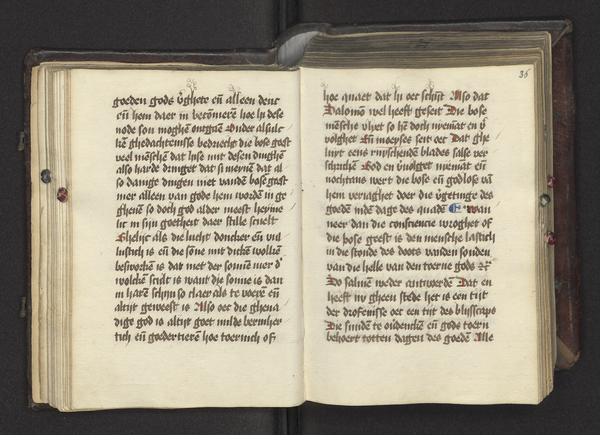 goeden gods v̄ghete en̄ alleen denc
en̄ hem daer in becōmere hoe hi dese
node sou moghen ontgaen Onder alsulc
ken ghedachtenisse bedruct die bose geest
veel menschen dat hise mit desen dinghen
also harde dringet dat si meynen dat al
so danige dingen niet vanden bose geest
mer alleen van gode hem worden in ge
gheuen so doch god alder meest heyme
lic in sijn goetheit daer stille swelt
Ghelijc als die lucht doncker en̄ on
lustich is en̄ die sonne mit dicken wolken
beslooken is dat niet der sonnen mer d'
wolken scult is want die sonne is dan
in haren schijn so claer als te voren en̄
altijt geweest is Also oec die ghena
dige god is altijt goet milde bermher
tich en̄ goedertieren hoe toernich of
36
hoe quaet dat hi oec schijnt Also dat
Salomon wel heeft geseit Die bose
mensche vliet so hem doch niemat en v̄
volghet En̄ moyses seit oec Dat ghe
luyt eens ruyschenden blades salse ver
schricken God en v̄volget niemat en̄
nochtans wert die bose en̄ godlose vā
hem veriaghet doer die v̄getinge des
goeden inden dage des quade Wan
neer dan die consciencie wroghet of
die bose geest is den mensche lastich
in die stonde des doots vanden sonden
van die helle van den toerne gods
So salmen weder antwoerden Dat en
heeft nv gheen stede het is een tijt
der drofenisse oec een tijt des blijscaps
Die sunden te ouerdencken en̄ gods toern
behoert totten dagen des goeden Alle